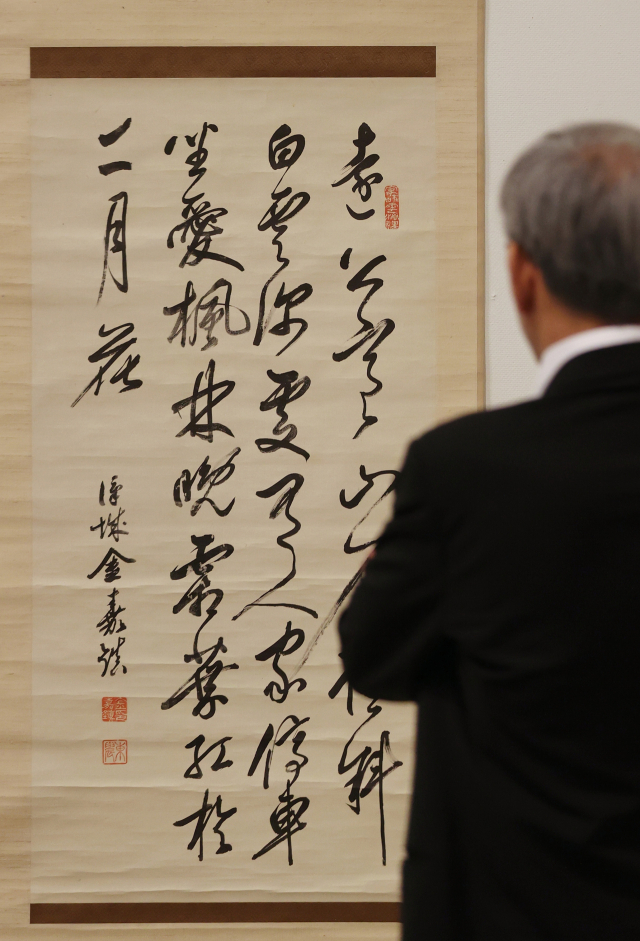 遠上寒山石徑斜
白雲深處有人家停車
坐愛楓林晚霜葉紅於
二月花
城金嘉鎮